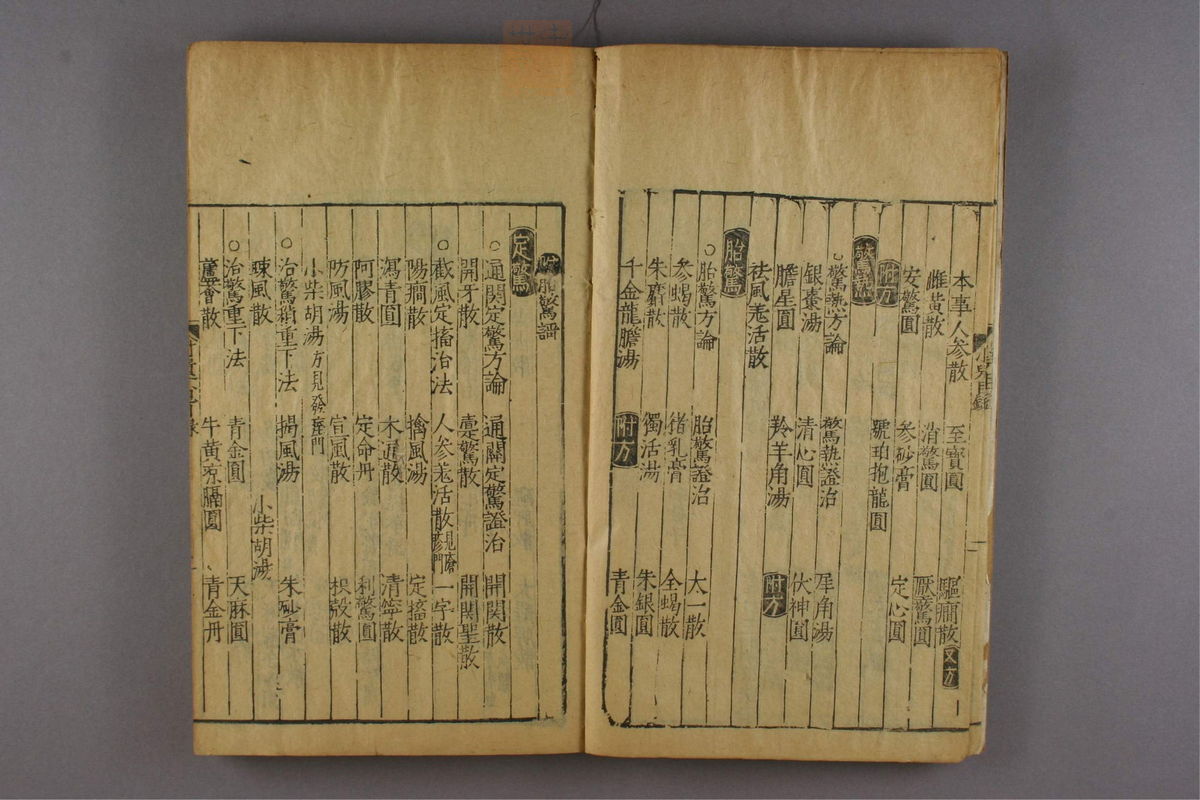 本事人參散 至寶圓 驅癎散 又方
雌黃散 清驚圓 厭驚圓
安驚圓 參砂膏 定心圓
附方 琥珀抱龍圓
驚熱
○驚熱方論 驚熱證治 犀角湯
銀棗湯 清心圓 伏神圓
膽星圓 羚羊角湯 附方
祛風羗活散
胎驚
○胎驚方論 胎驚證治 太一散
參蝎散 猪乳膏 全蝎散
朱麝散 獨活湯 朱銀圓
千金龍膽湯 附方 青金圓
附胎驚譜
定驚
○通關定驚方論 通關定驚證治 開關散
開牙散 橐驚散 開關聖散
○截風定搐治法 人參羗活散 一字散
陽癎散 擒風湯 定搐散
瀉青圓 木通散 清寧散
阿膠散 定命丹 利驚圓
防風湯 宣風散 枳殼散
小柴胡湯 方見發
○治驚稍重下法 揭風湯 朱砂膏
踈風散 小柴胡湯
○治驚重下法 青金圓 天麻圓
蘆薈散 牛黃凉膈圓 青金丹